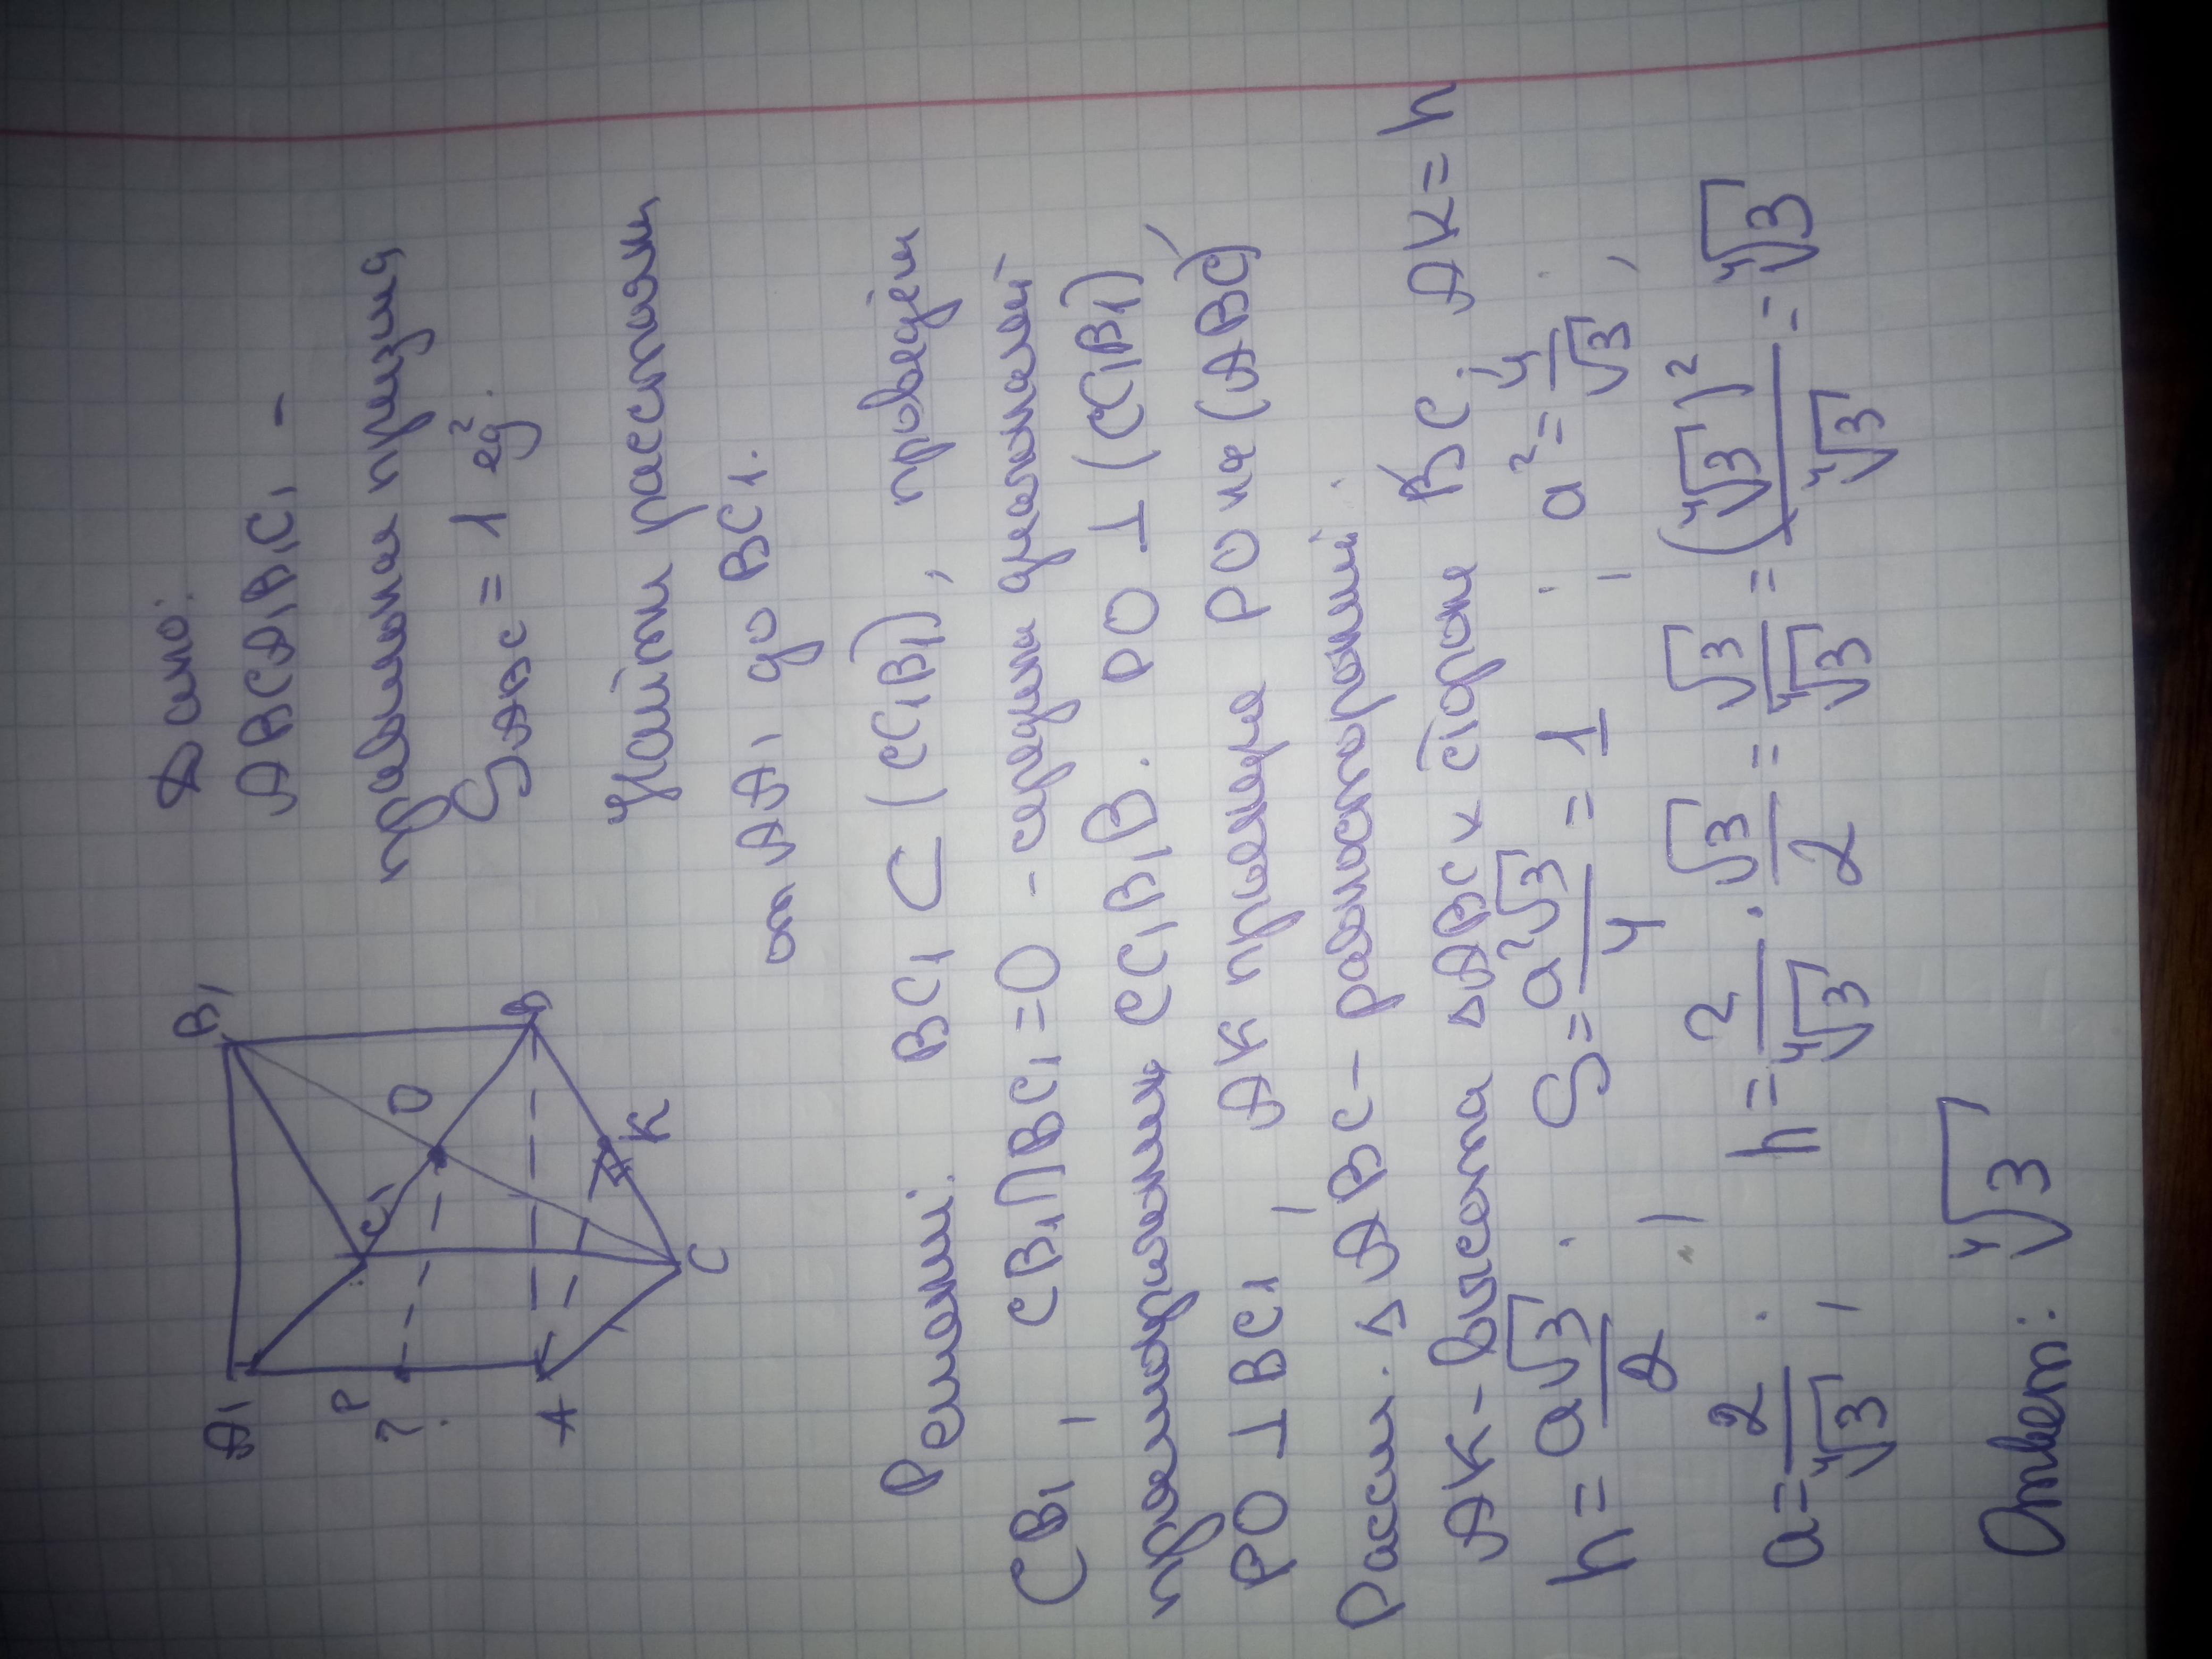 Дано:
ABCA₁B₁C₁ -
правильная призма
S△ABC = 1 ед².
Найти расстояние
от AA₁ до BC₁.
A₁ B₁ C₁ O P ? A B C K
Решение: BC₁ ⊂ (CC₁B₁), проведём
CB₁, CB₁∩BC₁=O - середина диагоналей
прямоугольника CC₁B₁B. PO ⊥ (CC₁B₁)
PO ⊥ BC₁, AK проекция PO на (ABC)
Рассм. △ABC - равносторонний.
AK - высота △ABC к стороне BC, AK = h
h = a√3/2; S = a²√3/4 = 1; a² = 4/√3;
a = 2/⁴√3; h = 2/⁴√3 · √3/2 = √3/⁴√3 = (⁴√3)²/⁴√3 = ⁴√3
Ответ: ⁴√3